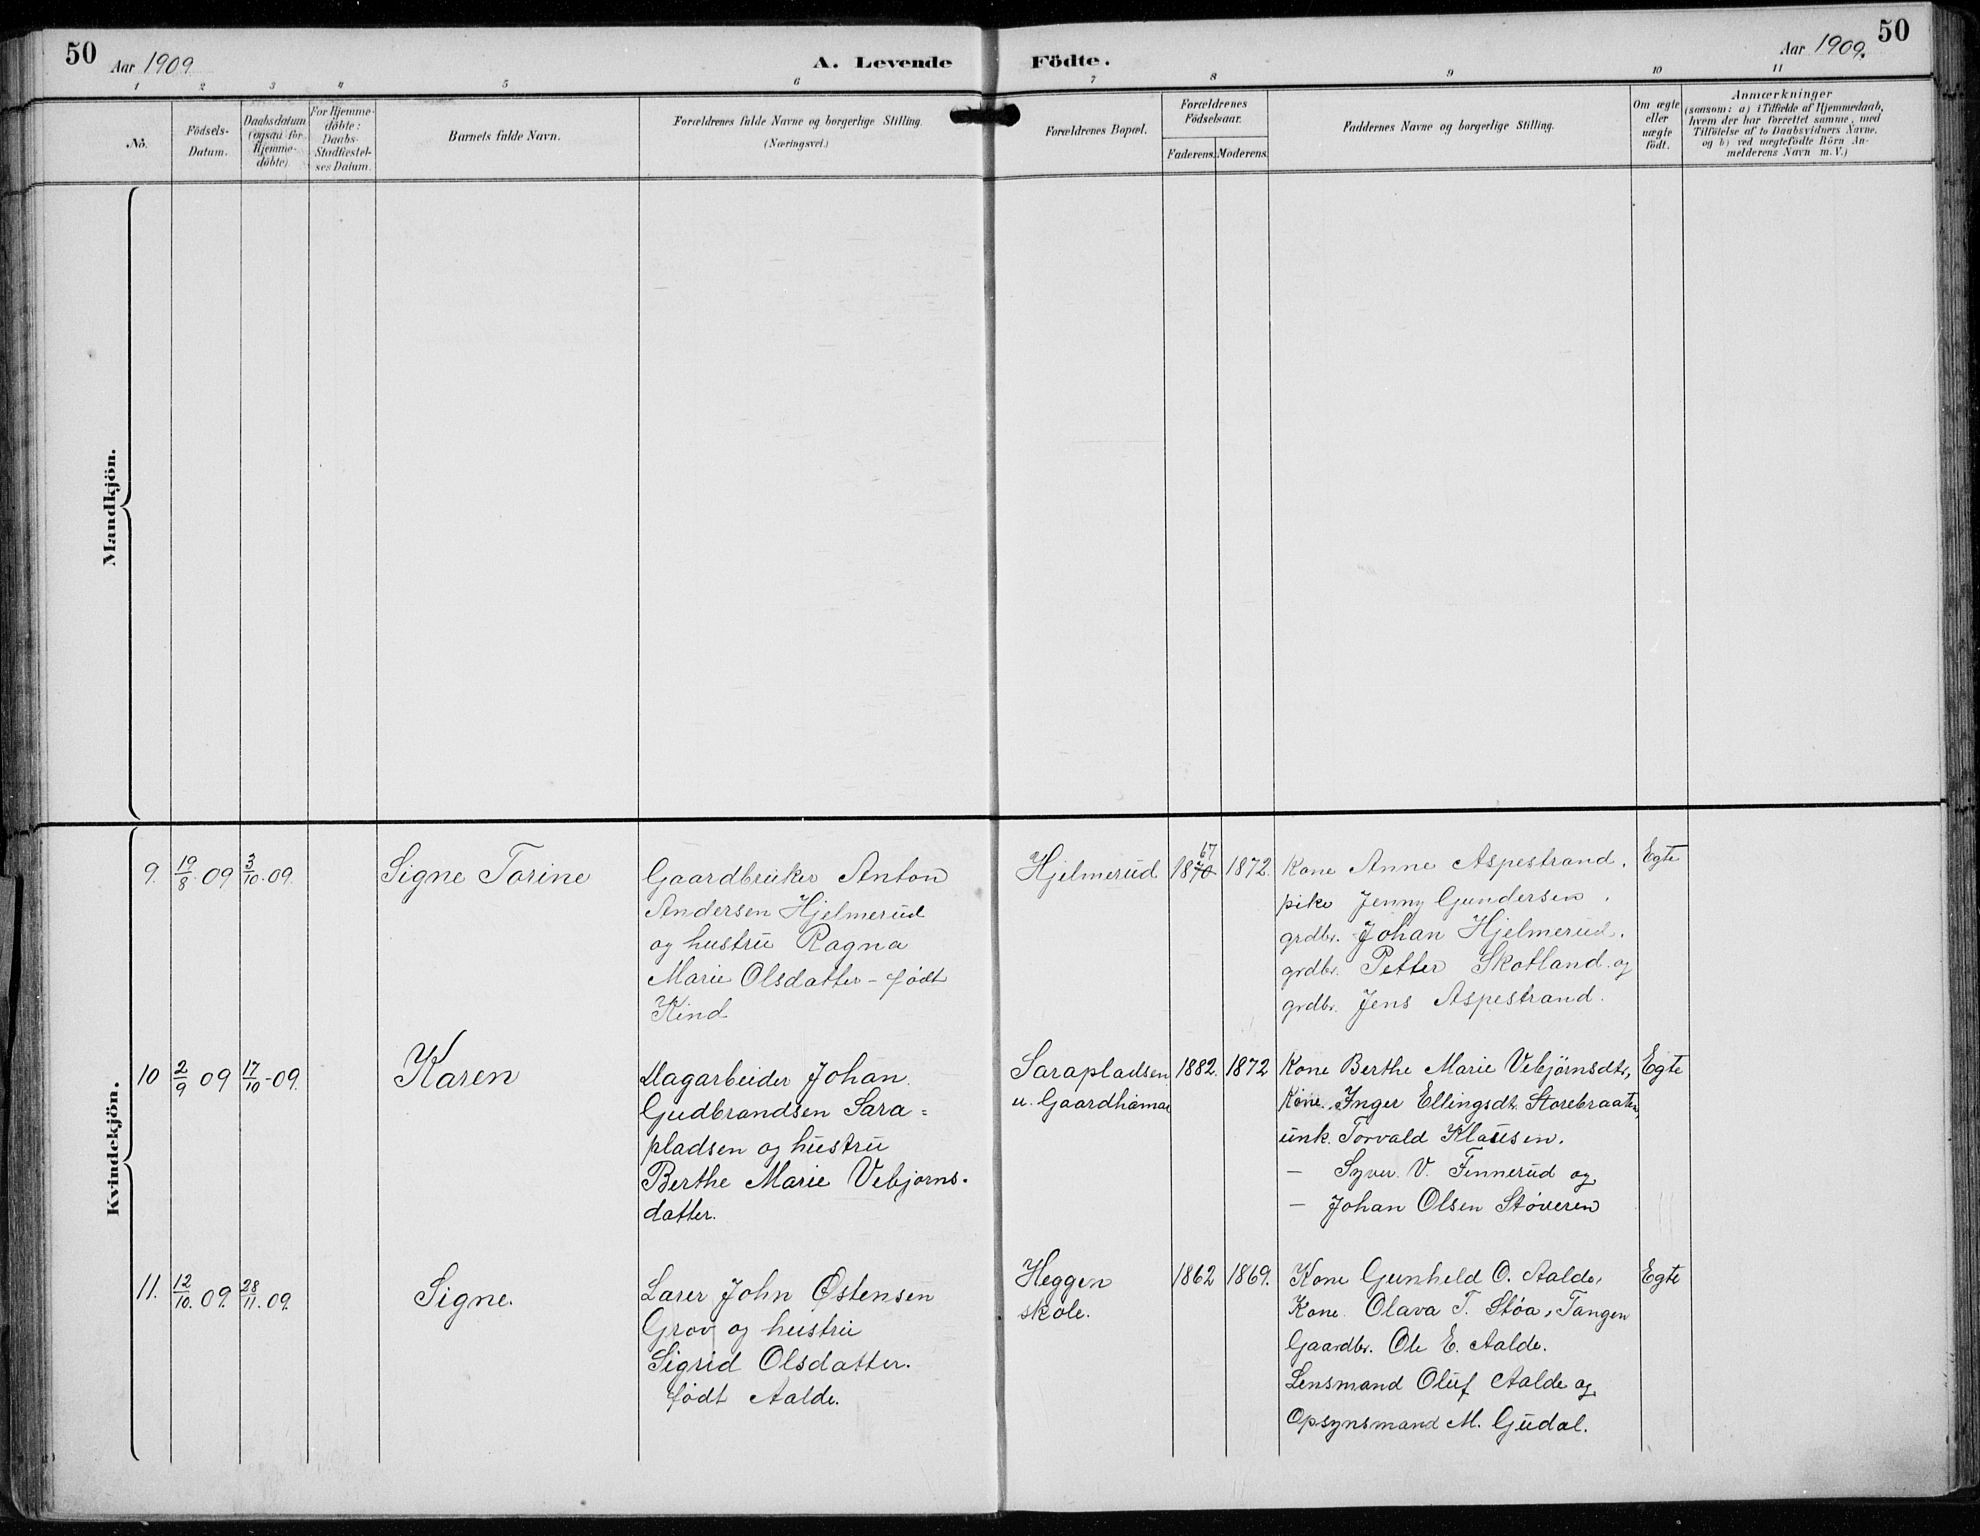 50
Aar 1909
A. Levende Födte.
Aar 1909.
50
1 2 3 4 5 6 7 8 9 10 11
No.
Födsels-
Datum.
Daabsdatum
(ogsaa for
Hjemme-
döbte)
For Hjemme-
döbte:
Daabs-
Stadfæstel-
ses Datum.
Barnets fulde Navn.
Forældrenes fulde Navne og borgerlige Stilling.
(Næringsvei.)
Forældrenes Bopæl.
Forældrenes
Födselsaar.
Faderens.
Moderens.
Faddernes Navne og borgerlige Stilling.
Om ægte
eller
uægte
födt.
Anmærkninger
(saasom: a) i Tilfælde af Hjemmedaab,
hvem der har forrettet samme, med
Tilföielse af to Daabsvidners Navne,
og b) ved uægtefödte Börn An-
melderens Navn m. V.)
Mandkjön.
Kvindekjön.
9. 19/8. 09 3/10. 09.
Signe Torine
Gaardbruker Anton
Andersen Hjelmerud
og hustru Ragna
Marie Olsdatter - født
Kind
Hjelmerud
67
1870
1872.
Kone Anne Aspestrand.
pike Jenny Gundersen.
grdbr. Johan Hjelmerud.
grdbr. Petter Skotland og
grdbr. Jens Aspestrand.
Egte
10 2/9 09 17/10-09.
Karen
Dagarbeider Johan
Gudbrandsen Sara=
pladsen og hustru
Berthe Marie Vebjørns-
datter.
Sarapladsen
u. Gaardhamar
1882. 1872
Kone Berthe Marie Vebjørnsdtr,
Kone Inger Ellingsdtr. Storebraaten,
unk. Torvald Klausen.
— Syver V. Finnerud og
— Johan Olsen Støveren
Egte
11. 12/10. 09. 28/11. 09.
Signe.
Lærer John Østensen
Grov og hustru
Sigrid Olsdatter.
født Aalde.
Heggen
skole.
1862 1869.
Kone Gunhild O. Aalde,
Kone Olava T. Støa, Tangen
Gaardbr. Ole E. Aalde.
Lensmand Oluf Aalde og
Opsynsmand M. Gudal.
Egte